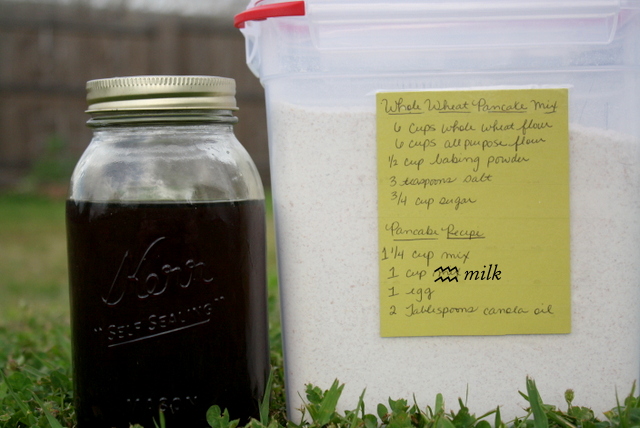 Kerr
"SELF SEALING"
MASON
Whole Wheat Pancake Mix
6 cups whole wheat flour
6 cups all purpose flour
1/2 cup baking powder
3 teaspoons salt
3/4 cup sugar
Pancake Recipe
1 1/4 cup mix
1 cup milk
1 egg
2 Tablespoons canola oil